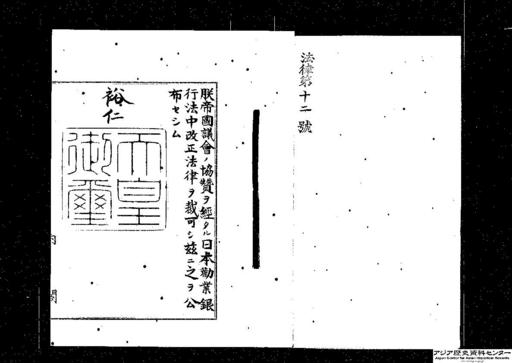 法律第十二號
朕帝國議會ノ協贊ヲ經タル日本勸業銀
行法中改正法律ヲ裁可シ茲ニ之ヲ公
布セシム
裕仁
天皇
御璽
内
閣
アジア歴史資料センター
Japan Center for Asian Historical Records